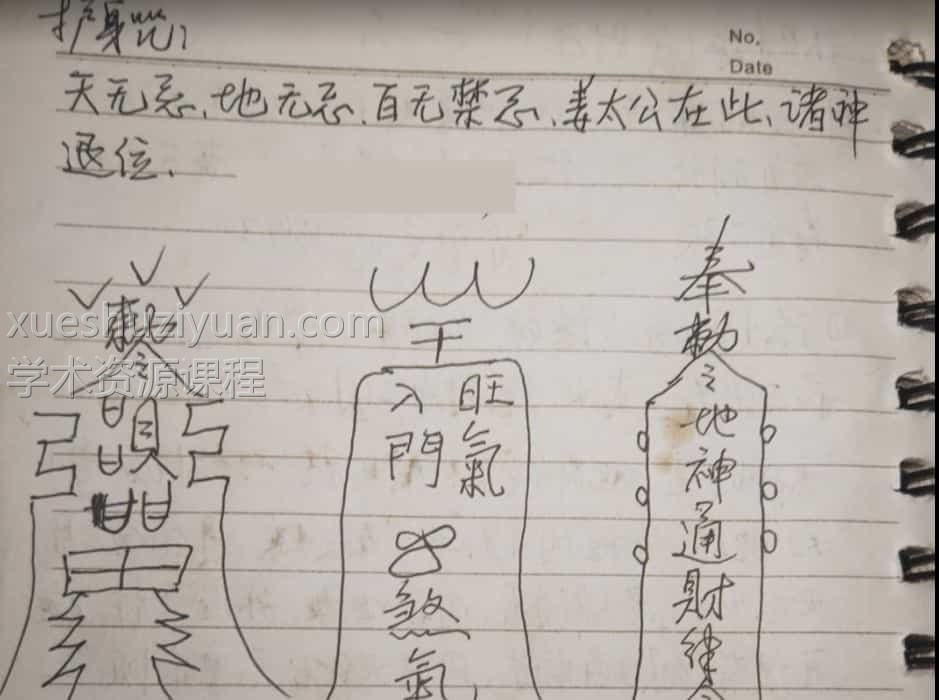 护身咒
No.
Date
天无忌、地无忌、百无禁忌、姜太公在此、诸神
退位.
xueshuziyuan.com
学术资源课程
入門
旺氣
煞氣
奉勅令地神通財